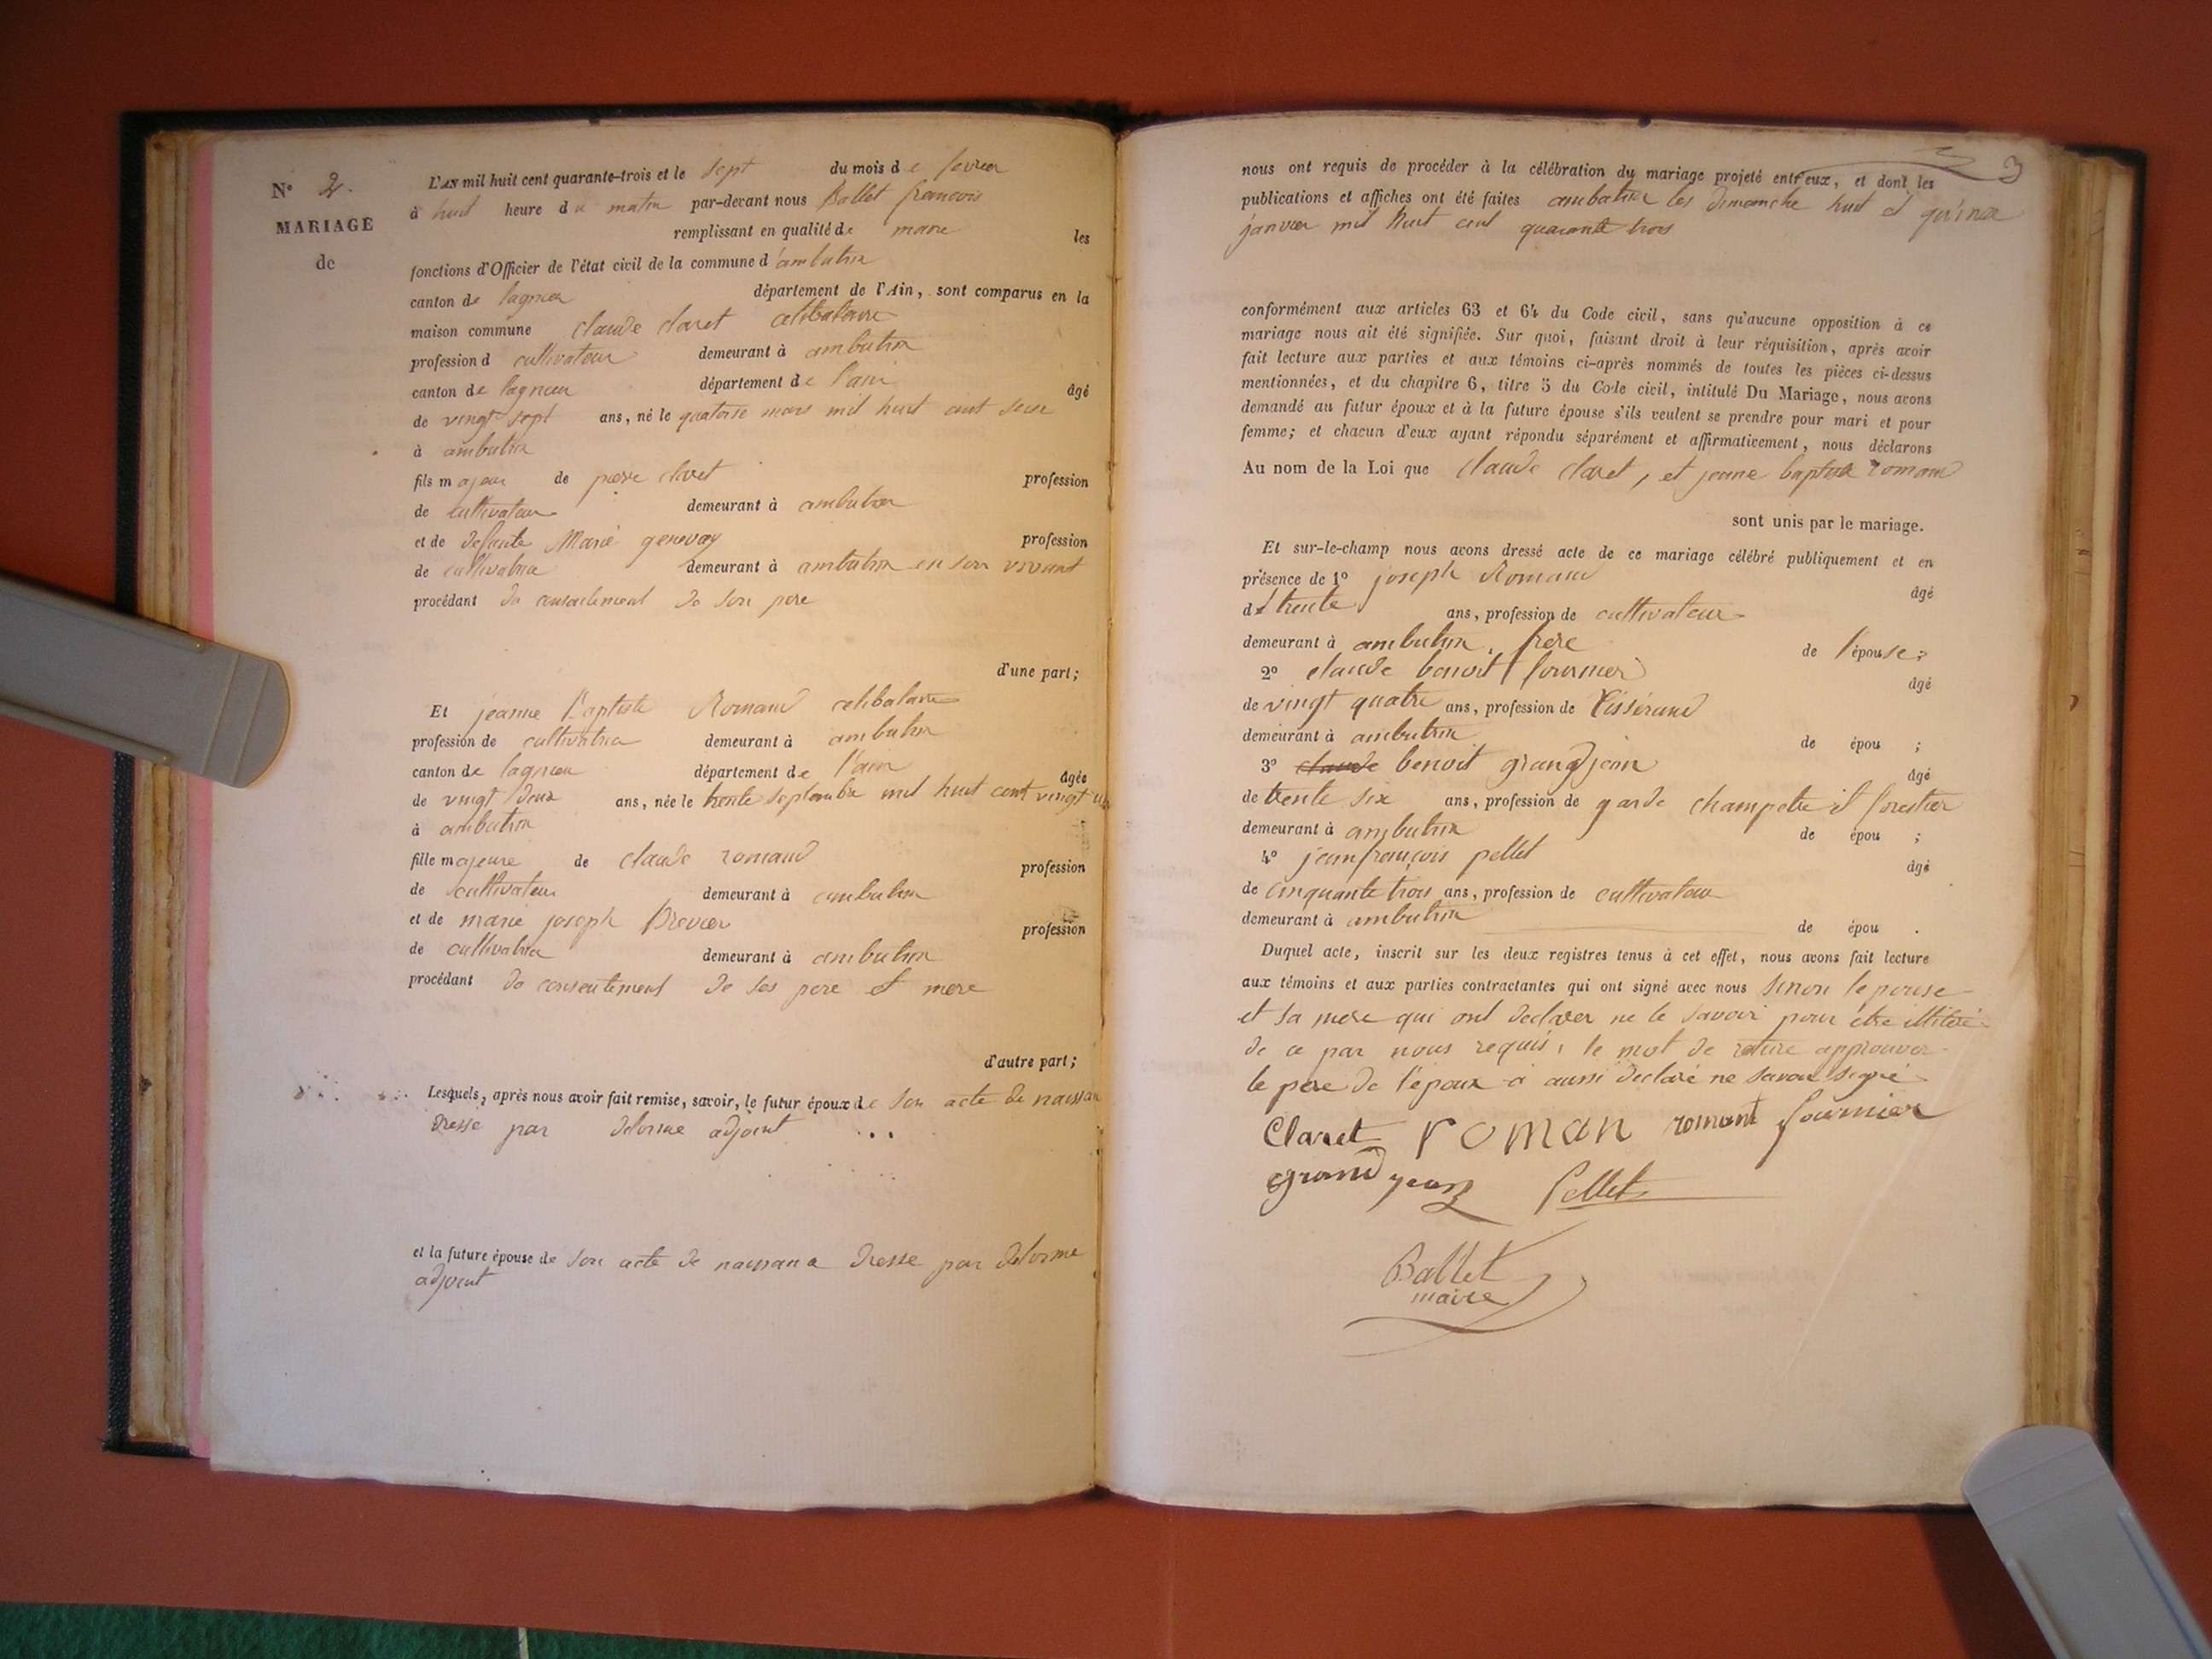 N° 2.
MARIAGE
de
L'AN mil huit cent quarante-trois et le sept du mois de fevrier
à huit heure du matin par-devant nous Ballet francois
remplissant en qualité de maire les
fonctions d'Officier de l'état civil de la commune d'ambutrix
canton de lagnieu département de l'Ain, sont comparus en la
maison commune claude claret celibataire
profession d cultivateur demeurant à ambutrix
canton de lagnieu département de l'ain âgé
de vingt sept ans, né le quatorse mars mil huit cent seise
à ambutrix
fils majeur de pierre claret profession
de cultivateur demeurant à ambutrix
et de defunte Marie genevay profession
de cultivatrice demeurant à ambutrix en son vivant
procédant du consentement de son pere
d'une part;
Et jeanne Baptiste Romand celibataire
profession de cultivatrice demeurant à ambutrix
canton de lagnieu département de l'ain âgée
de vingt deux ans, née le trente septembre mil huit cent vingt
à ambutrix
fille majeure de claude romand profession
de cultivateur demeurant à ambutrix
et de marie joseph profession
de cultivatrice demeurant à ambutrix
procédant du consentement de ses pere et mere
d'autre part;
Lesquels, après nous avoir fait remise, savoir, le futur époux de son acte de naissan
dresse par delorme adjoint
et la future épouse de son acte de naissance dresse par delorme
adjoint
3
nous ont requis de procéder à la célébration du mariage projeté entr'eux, et dont les
publications et affiches ont été faites ambutrix les dimanche huit et quinze
janvier mil huit cent quarante trois
conformément aux articles 63 et 64 du Code civil, sans qu'aucune opposition à ce
mariage nous ait été signifiée. Sur quoi, faisant droit à leur réquisition, après avoir
fait lecture aux parties et aux témoins ci-après nommés de toutes les pièces ci-dessus
mentionnées, et du chapitre 6, titre 5 du Code civil, intitulé Du Mariage, nous avons
demandé au futur époux et à la future épouse s'ils veulent se prendre pour mari et pour
femme; et chacun d'eux ayant répondu séparément et affirmativement, nous déclarons
Au nom de la Loi que claude claret, et jeanne baptiste romand
sont unis par le mariage.
Et sur-le-champ nous avons dressé acte de ce mariage célébré publiquement et en
présence de 1° joseph Romand âgé
de trente ans, profession de cultivateur
demeurant à ambutrix, frere de l'épouse;
2° claude benoit fournier âgé
de vingt quatre ans, profession de Tisserand
demeurant à ambutrix de épou ;
3° claude benoit grandjean âgé
de trente six ans, profession de garde champetre et forestier
demeurant à ambutrix de épou ;
4° jean françois pellet âgé
de cinquante trois ans, profession de cultivateur
demeurant à ambutrix de épou .
Duquel acte, inscrit sur les deux registres tenus à cet effet, nous avons fait lecture
aux témoins et aux parties contractantes qui ont signé avec nous sinon l'epouse
et sa mere qui ont declarer ne le savoir pour être illitéré
de ce par nous requis, le mot de rature approuver
le pere de l'époux a aussi declaré ne savoir signé
Claret roman romant fournier
grand jean Pellet
Ballet
maire